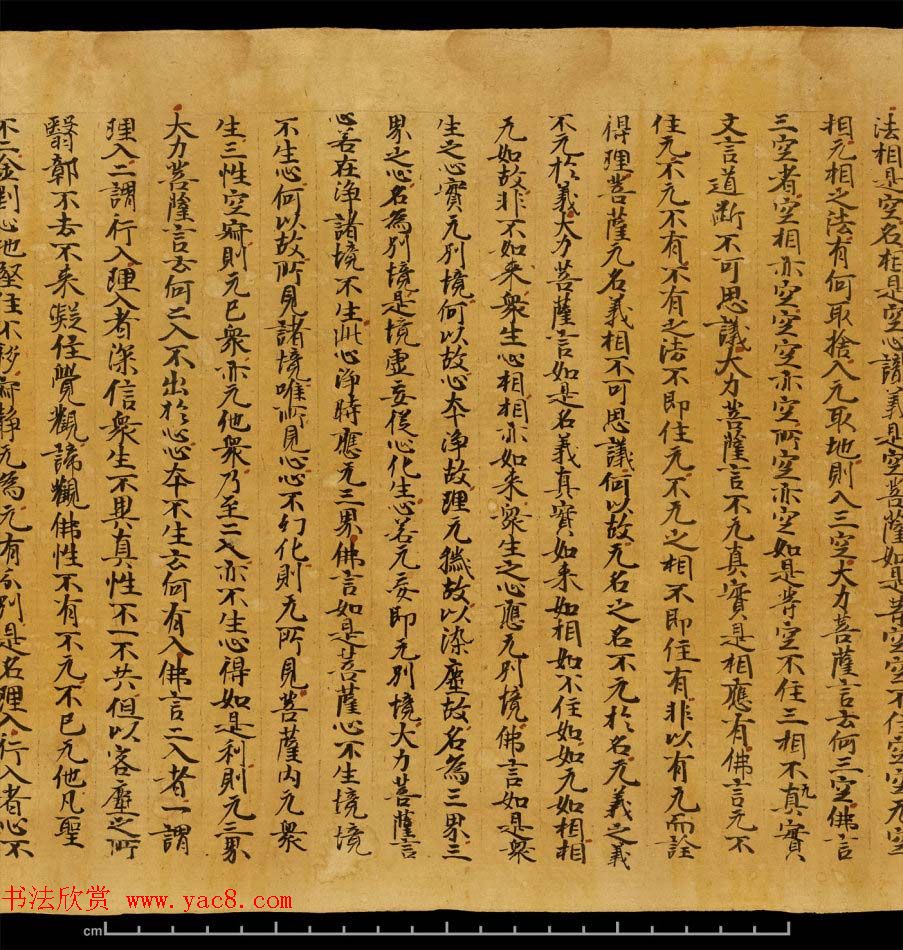 法相是空名相是空心識義是空菩薩如是等空空不住空空无空
相无相之法有何取捨入无取地則入三空大力菩薩言云何三空佛言
三空者空相亦空空空亦空所空亦空如是等空不住三相不无真實
文言道断不可思議大力菩薩言不无真實是相應有佛言无不
住无不无不有不有之法不即住无不无之相不即住有非以有无而詮
得理菩薩无名義相不可思議何以故无名之名不无於名无義之義
不无於義大力菩薩言如是名義真實如来如相如不住如如无如相相
无如故非不如来衆生心相相亦如来衆生之心應无別境佛言如是衆
生之心實无別境何以故心本浄故理无穢故以染塵故名為三界三
界之心名為別境是境虚妄從心化生心若无妄即无別境大力菩薩言
心若在浄諸境不生此心浄時應无三界佛言如是菩薩心不生境境
不生心何以故所見諸境唯所見心心不幻化則无所見菩薩内无衆
生三性空寂則无已衆亦无他衆乃至二入亦不生心得如是利則无三界
大力菩薩言云何二入不出於心心本不生云何有入佛言二入者一謂
理入二謂行入理入者深信衆生不異真性不一不共但以客塵之所
翳鄣不去不来凝住覺觀諦觀佛性不有不无不已无他凡聖
不二金剛心地堅住不移寂静无為无有分別是名理入行入者心不
书法欣赏 www.yac8.com
cm